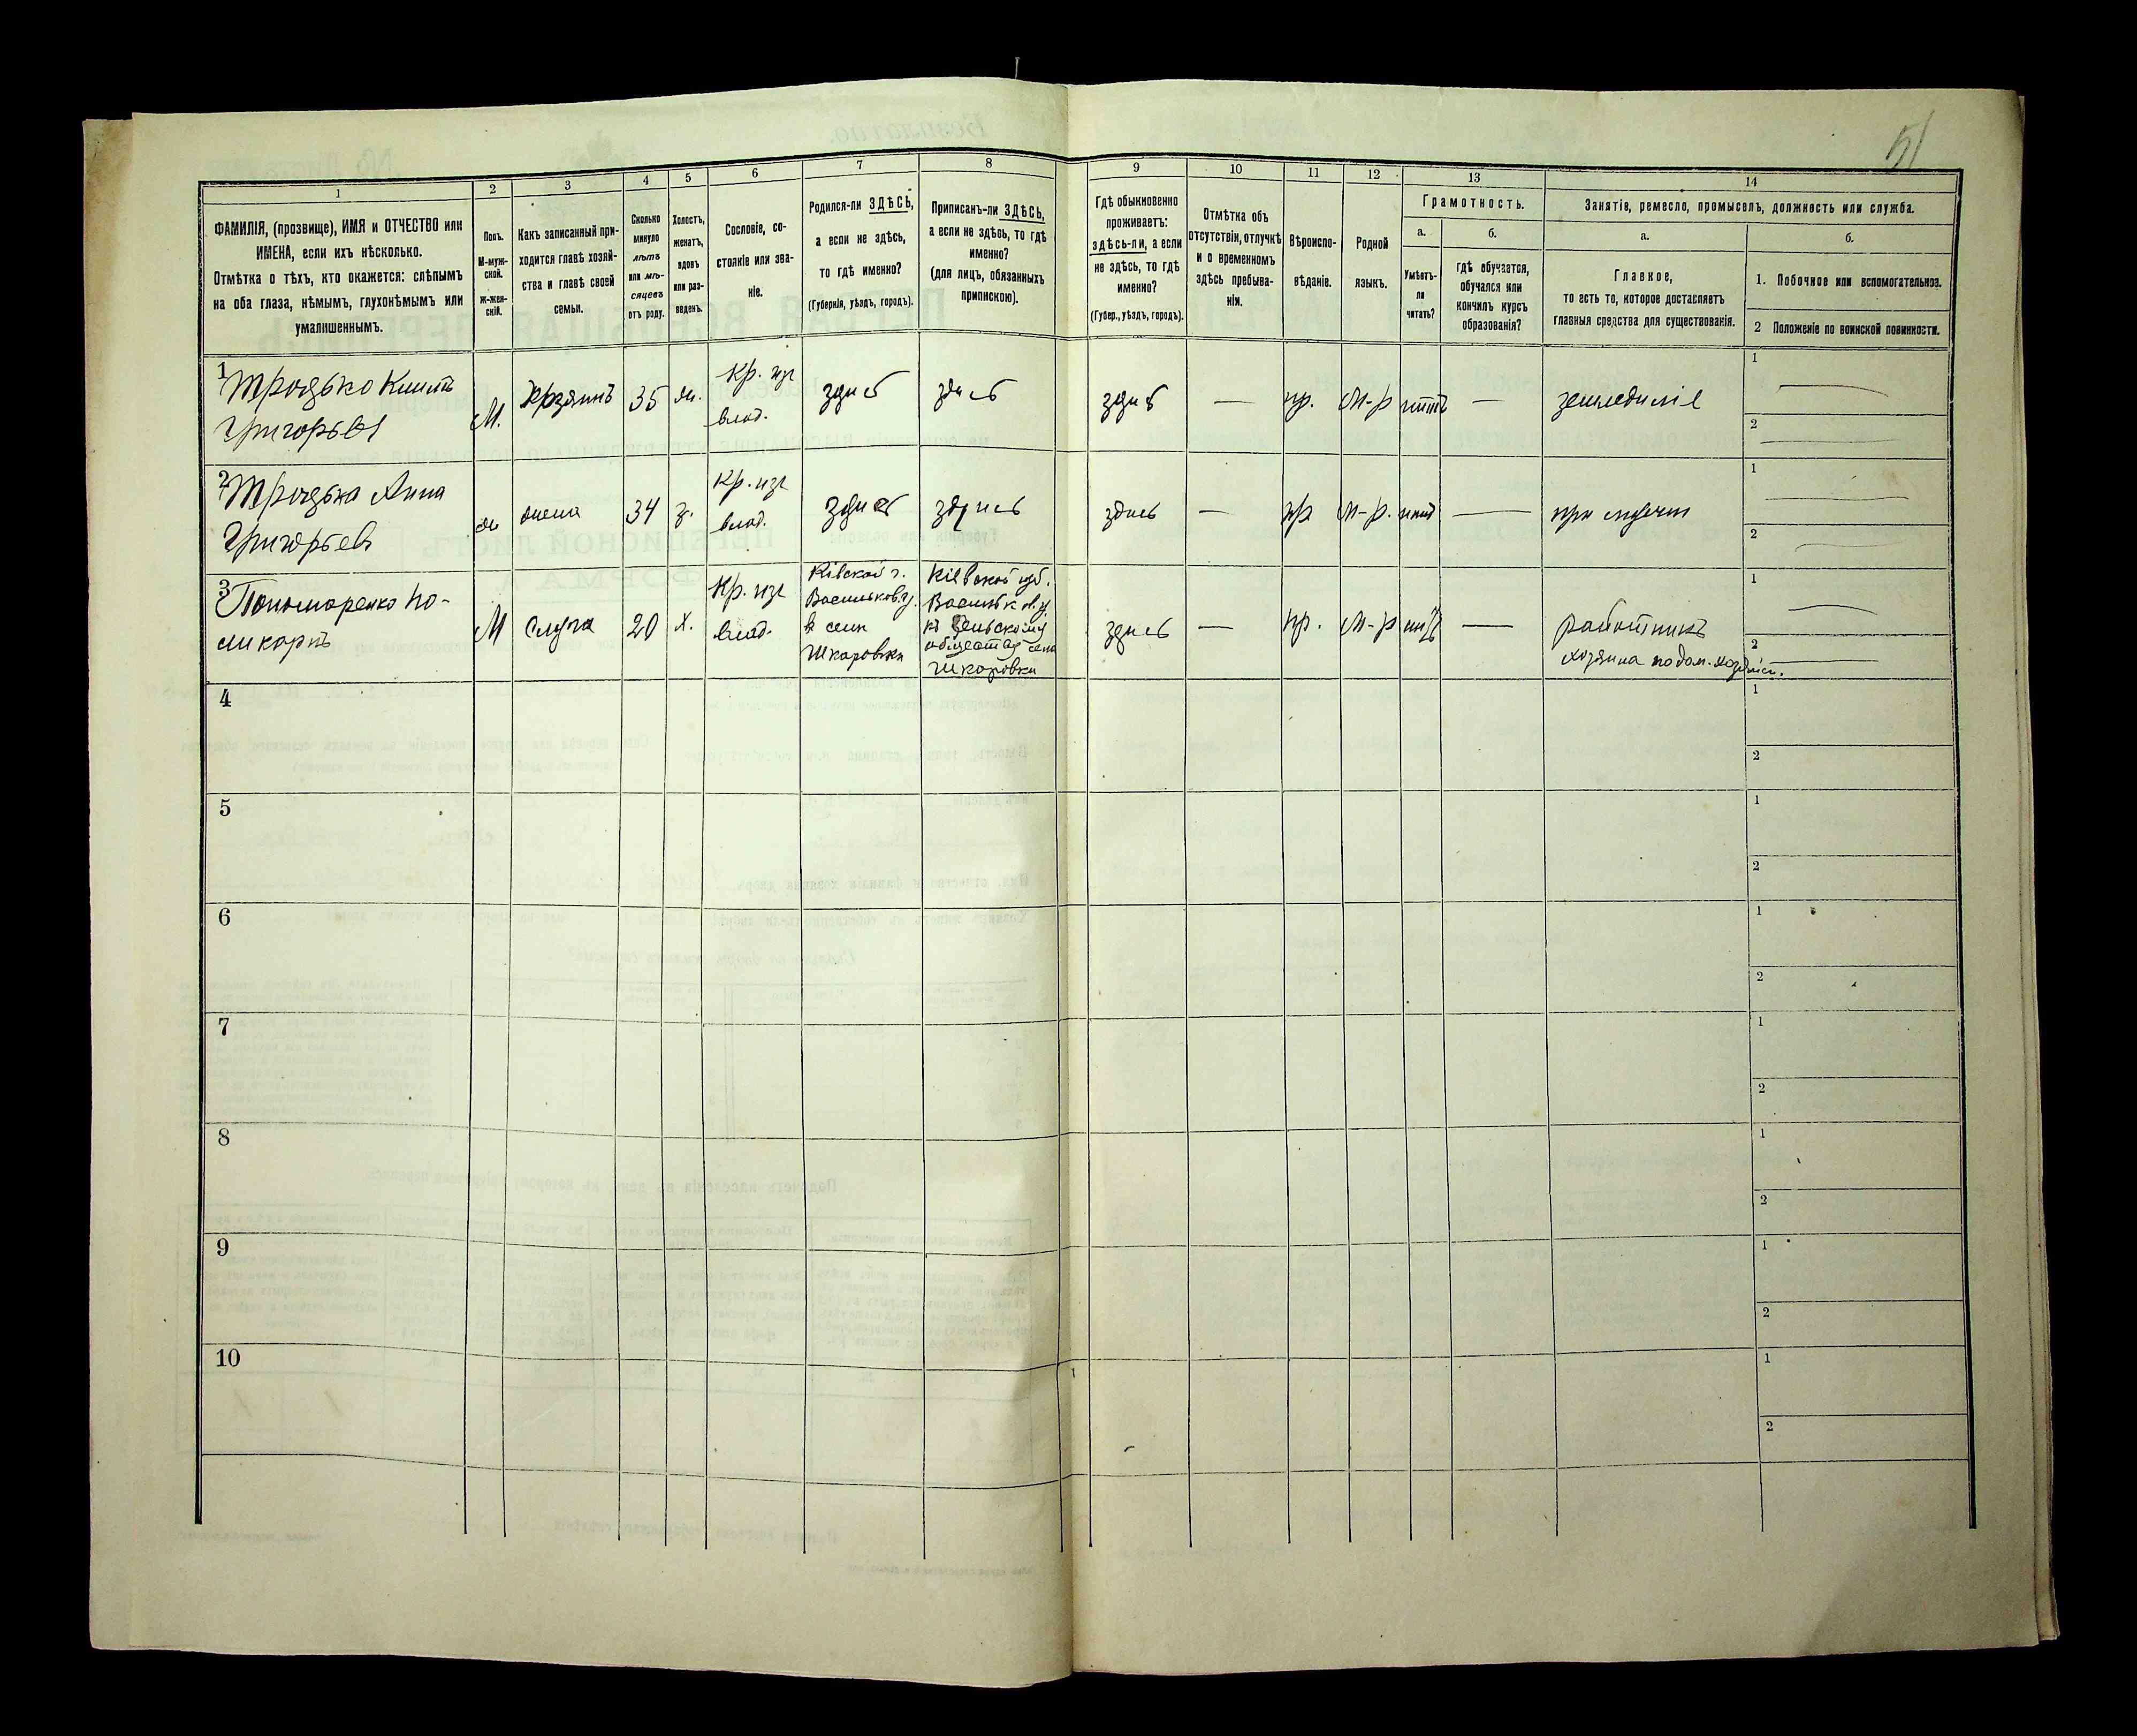 51
1
2
3
4
5
6
7
8
9
10
11
12
13
14
ФАМИЛІЯ, (прозвище), ИМЯ и ОТЧЕСТВО или
ИМЕНА, если ихъ нѣсколько.
Отмѣтка о тѣхъ, кто окажется: слѣпымъ
на оба глаза, нѣмымъ, глухонѣмымъ или
умалишеннымъ.
Полъ.
М-муж-
ской.
ж-жен-
скій.
Какъ записанный при-
ходится главѣ хозяй-
ства и главѣ своей
семьи.
Сколько
минуло
лѣтъ
или мѣ-
сяцевъ
отъ роду.
Холостъ,
женатъ,
вдовъ
или раз-
веденъ.
Сословіе, со-
стояніе или зва-
ніе.
Родился-ли ЗДѢСЬ,
а если не здѣсь,
то гдѣ именно?
(Губернія, уѣздъ, городъ).
Приписанъ-ли ЗДѢСЬ,
а если не здѣсь, то гдѣ
именно?
(для лицъ, обязанныхъ
припискою).
Гдѣ обыкновенно
проживаетъ:
здѣсь-ли, а если
не здѣсь, то гдѣ
именно?
(Губер., уѣздъ, городъ).
Отмѣтка объ
отсутствіи, отлучкѣ
и о временномъ
здѣсь пребыва-
ніи.
Вѣроиспо-
вѣданіе.
Родной
языкъ.
Грамотность.
а.
Умѣетъ-
ли
читать?
б.
гдѣ обучается,
обучался или
кончилъ курсъ
образованія?
Занятіе, ремесло, промыселъ, должность или служба.
а.
Главное,
то есть то, которое доставляетъ
главныя средства для существованія.
б.
1. Побочное или вспомогательное.
2 Положеніе по воинской повинности.
1
Троцько
Григорьев
М.
35
Кр. изъ
влад.
здись
здись
здись
—
пр.
М-р
нитъ
—
земледиліе
1
2
2
Троцька Анна
Григорьев
жена
34
з.
Кр. изъ
влад.
здись
здись
здись
—
пр
М-р.
нит
—
при мужи
1
2
3
Пономаренко По-
ликарпъ
М
Слуга
20
х.
Кр. изъ
влад.
Кіевской г.
Васильков. у.
в сели
Шкаровки
Кіевской губ.
Васильков. у.
къ сельскому
обществу села
Шкаровки
здись
—
пр.
М-р
нитъ
—
работникъ
хозяина по дом. хозяйст.
1
2
4
1
2
5
1
2
6
1
2
7
1
2
8
1
2
9
1
2
10
1
2